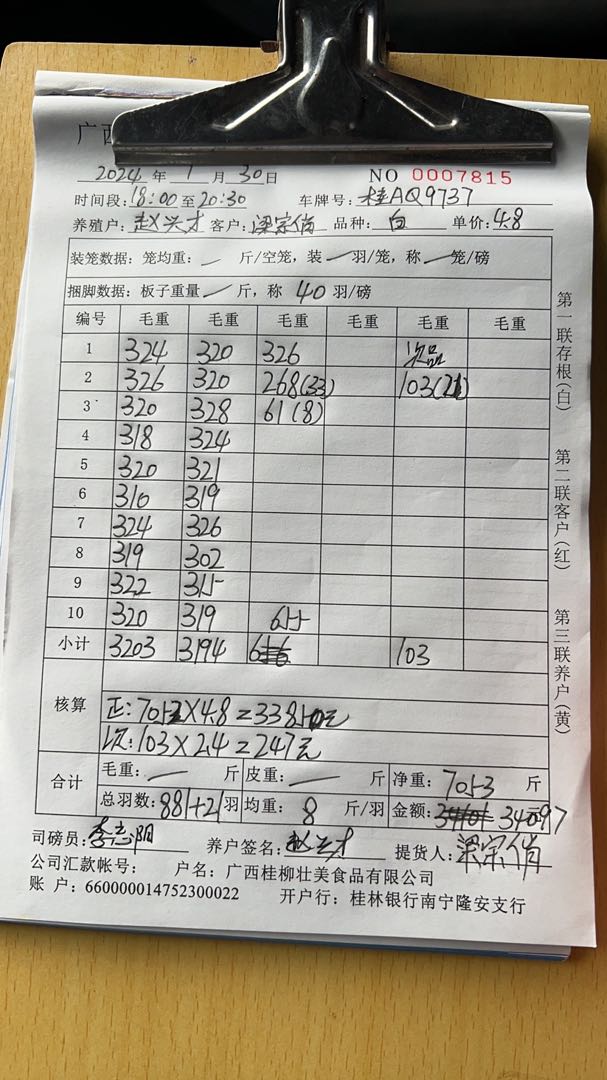 广西
2024 年 1 月 30 日 NO 0007815
时间段: 18:00 至 20:30 车牌号: 桂AQ9737
养殖户: 赵兴才 客户: 梁宗俏 品种: 白 单价: 4.8
装笼数据: 笼均重: — 斤/空笼, 装 — 羽/笼, 称 — 笼/磅
捆脚数据: 板子重量 — 斤, 称 40 羽/磅
编号 毛重 毛重 毛重 毛重 毛重 毛重
1 324 320 326 次品
2 326 320 268(33) 103(21)
3 320 328 61(8)
4 318 324
5 320 321
6 310 319
7 324 326
8 319 302
9 322 315
10 320 319 655
小计 3203 3194 103
核算
正: 7053X4.8=33850元
次: 103X2.4=247元
合计 毛重: — 斤 皮重: — 斤 净重: 7053 斤
总羽数: 881+21 羽 均重: 8 斤/羽 金额: 34097
司磅员: 李志阳 养户签名: 赵兴才 提货人: 梁宗俏
公司汇款帐号: 户名: 广西桂柳壮美食品有限公司
账 户: 660000014752300022 开户行: 桂林银行南宁隆安支行
第一联存根(白)
第二联客户(红)
第三联养户(黄)